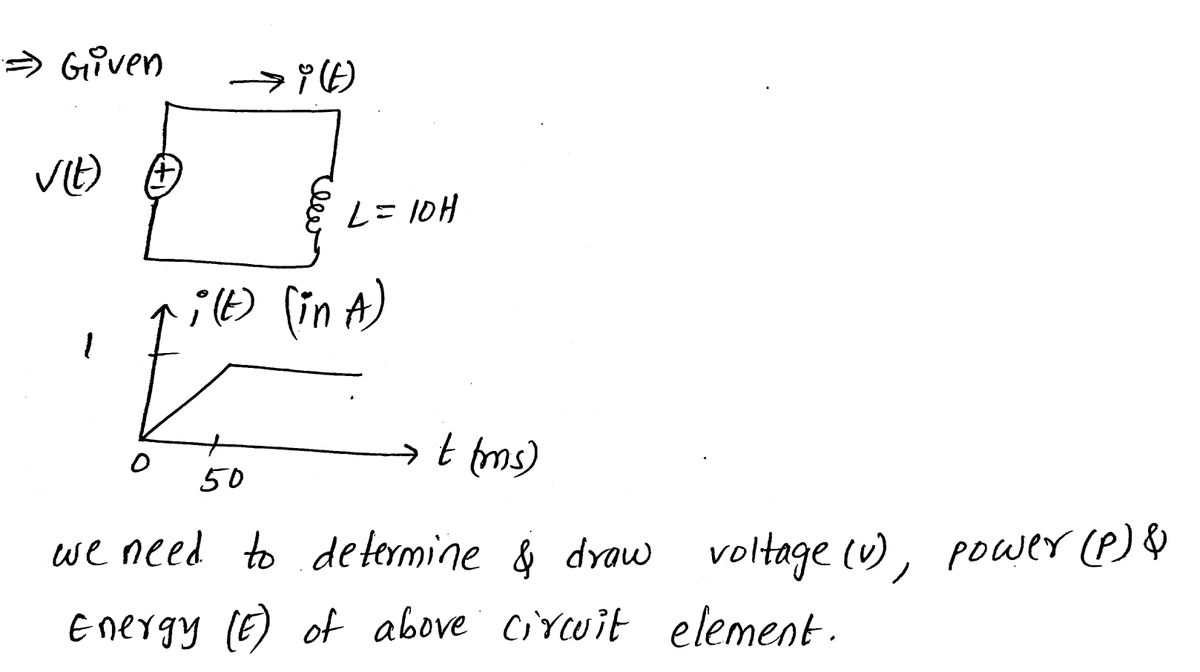 ⇒ Given
→ i(t)
v(t)
+
-
L = 10H
i(t) (in A)
1
t (ms)
0
50
we need to determine & draw voltage (v), power (P) &
Energy (E) of above circuit element.